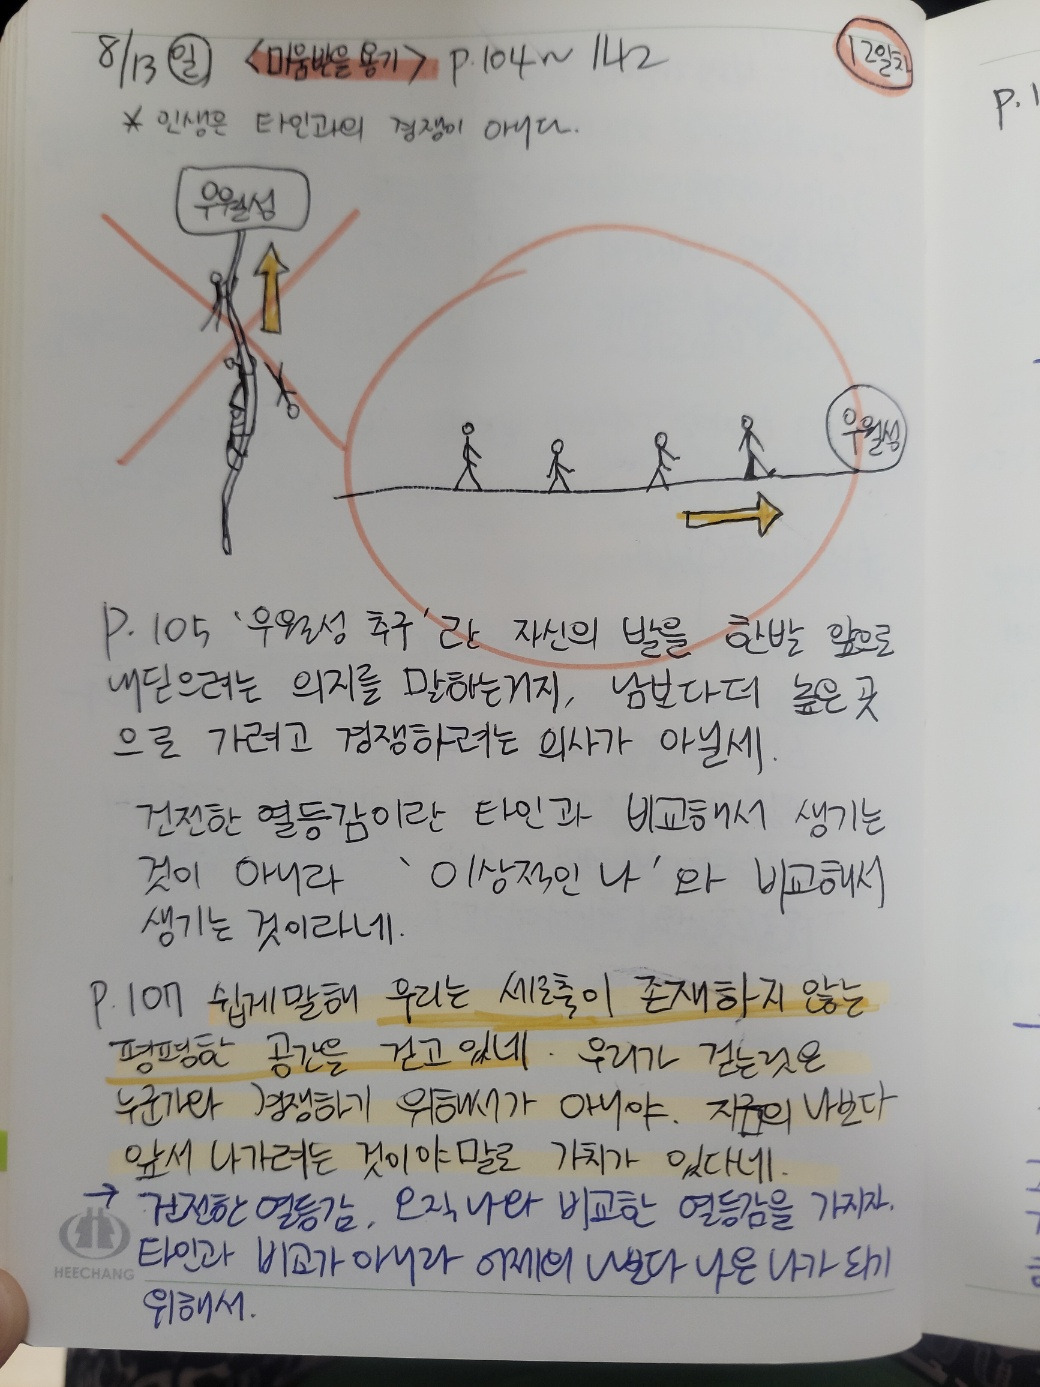 8/13 일 <미움받을 용기> p.104~142
12일차
* 인생은 타인과의 경쟁이 아니다.
우월성
우월성
P.105 '우월성 추구'란 자신의 발을 한발 앞으로
내딛으려는 의지를 말하는거지, 남보다 더 높은 곳
으로 가려고 경쟁하려는 의사가 아닐세.
건전한 열등감이란 타인과 비교해서 생기는
것이 아니라 '이상적인 나'와 비교해서
생기는 것이라네.
P.107 쉽게말해 우리는 세로축이 존재하지 않는
평평한 공간을 걷고 있네. 우리가 걷는것은
누군가와 경쟁하기 위해서가 아니야. 지금의 나보다
앞서 나가려는 것이야말로 가치가 있다네.
→ 건전한 열등감, 오직 나와 비교한 열등감을 가지자.
타인과 비교가 아니라 어제의 나보다 나은 나가 되기
위해서.
HEECHANG
p.1